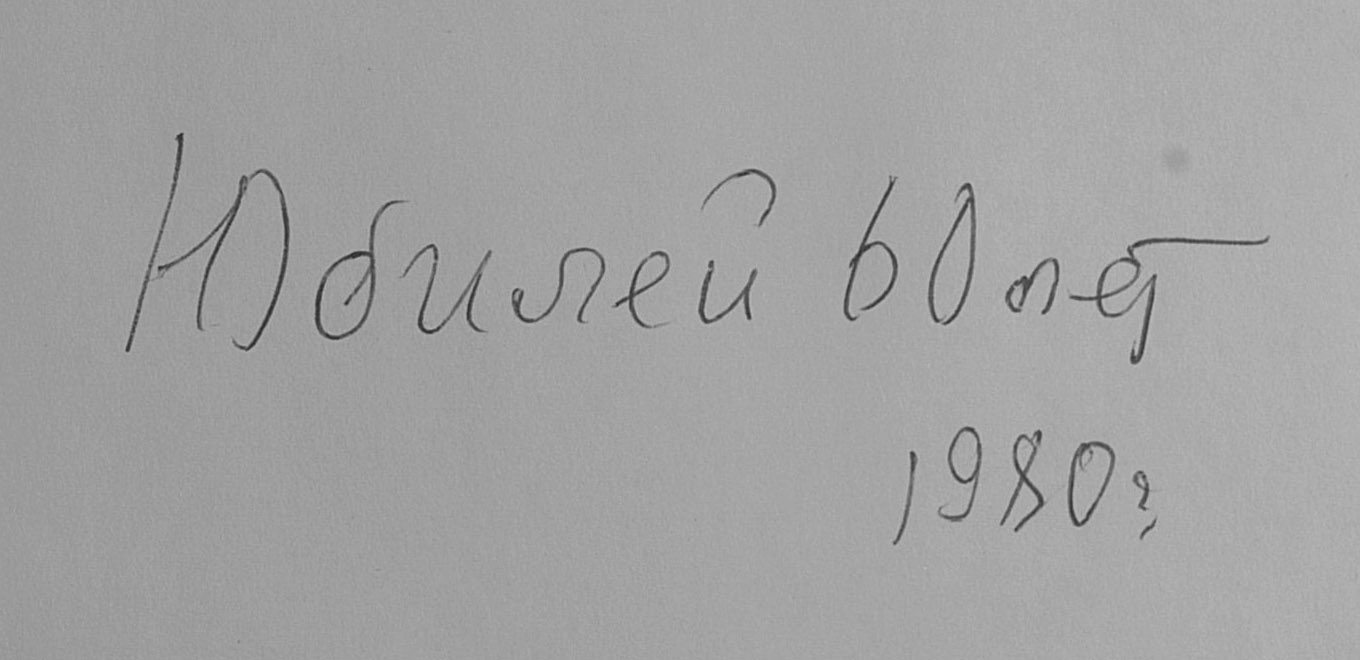 Юбилей 60 лет
1980г.